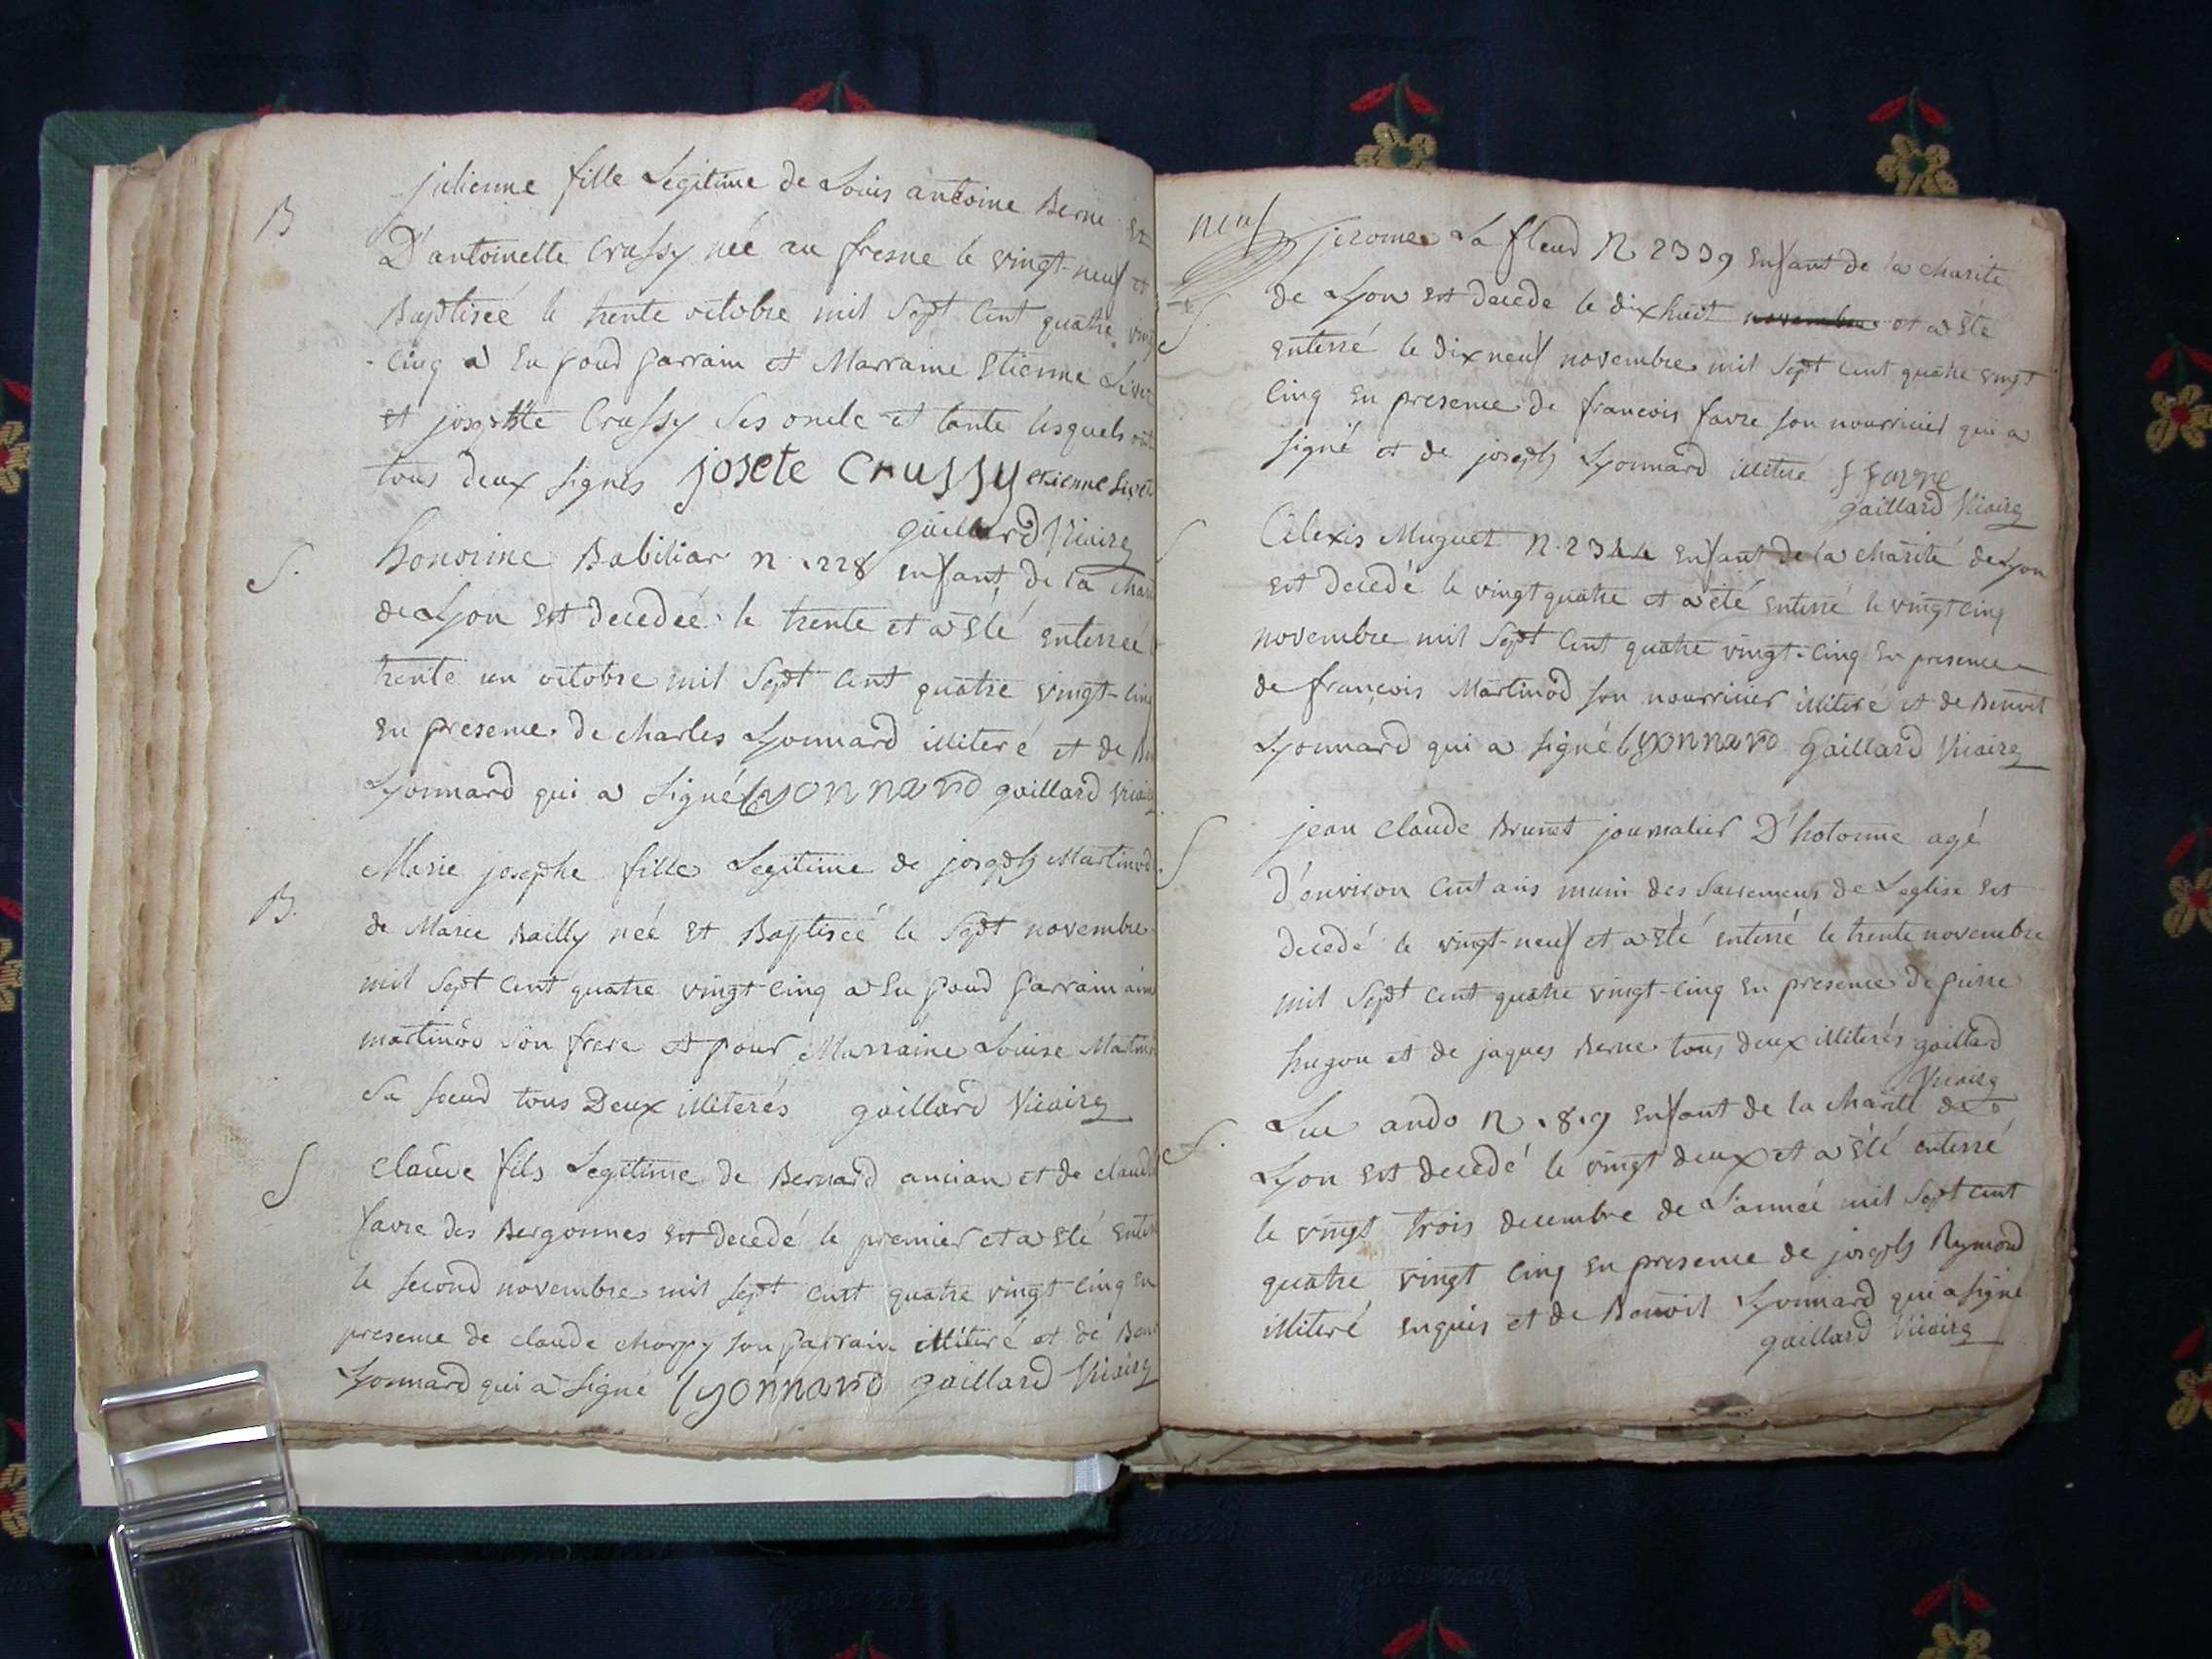 B
julienne fille Legitime de Louis antoine Berne et
D'antoinette Crussy née au fresne le vingt-neuf et
Baptisée le trente octobre mil Sept Cent quatre ving
-Cinq a Eu pour parrain et Marraine Etienne
et josephte Crussy Ses oncle et tante lesquels ont
tous deux signés josete Crussy etienne
gaillard Vicaire
S.
honorine Babiliar n. 1228 enfant de la chari
de Lyon est decedeé le trente et a Eté enterreé
trente un octobre mil Sept Cent quatre vingt-cinq
en presence de charles Lyonnard illiteré et de
Lyonnard qui a signé lyonnard gaillard vicaire
B.
Marie josephe fille Legitime de joseph Martinod
de Marie Bailly neé et Baptiseé le Sept novembre
mil Sept Cent quatre vingt Cinq a Eu pour parrain aimé
martinod son frere et pour Marraine Louise Martinod
Sa soeur tous Deux illiterés gaillard Vicaire
S
Claude fils Legitime de Bernard ancian et de claud
favre des Bergonnes est decedé le premier et a Eté enter
le second novembre mil sept cent quatre vingt cinq en
presence de claude chorpy son parrain illiteré et de Ben
Lyonnard qui a signé lyonnard gaillard Vicaire
neuf
S.
jerome La fleur N 2339 enfant de la charité
de Lyon est decedé le dixhuit novembre et a Eté
enterré le dixneuf novembre mil Sept cent quatre vingt
Cinq en presence de francois favre son nourricier qui a
signé et de joseph Lyonnard illiteré f favre
gaillard Vicaire
S
Alexis Muguet N. 2344 enfant de la charité de Lyon
est decedé le vingtquatre et a été enterré le vingtcinq
novembre mil Sept Cent quatre vingt-Cinq en presence
de françois Martinod son nourricier illiteré et de Benoit
Lyonnard qui a signé lyonnard gaillard Vicaire
S
jean Claude Brunet journalier D'hotonne agé
d'environ Cent ans muni des Sacremens de L'eglise est
decedé le vingt-neuf et a Eté enterré le trente novembre
mil Sept Cent quatre vingt-cinq en presence de pierre
hugon et de jaques Berne tous deux illiterés gaillard
Vicaire
S.
Luc ando N. 1819 enfant de la charité de
Lyon est decedé le vingt deux et a Eté enterré
le vingt trois decembre de L'anneé mil Sept cent
quatre vingt cinq en presence de joseph Rymond
illiteré enquis et de Benoit Lyonnard qui a signé
gaillard Vicaire